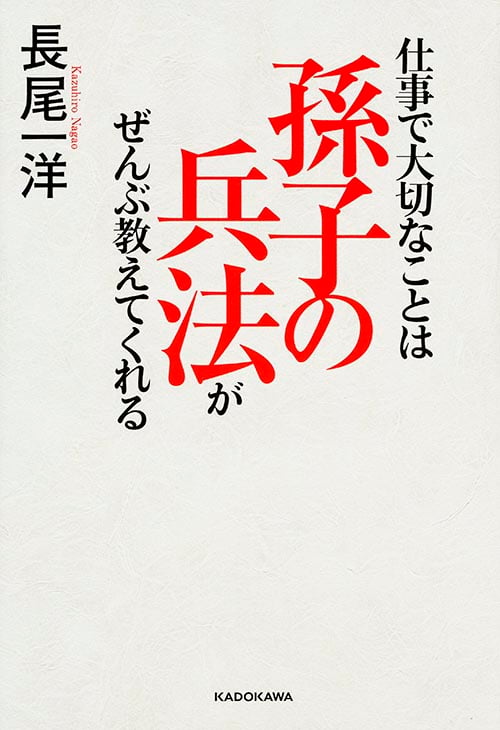 仕事で大切なことは
孫子の
兵法が
ぜんぶ教えてくれる
長尾一洋
Kazuhiro Nagao
KADOKAWA